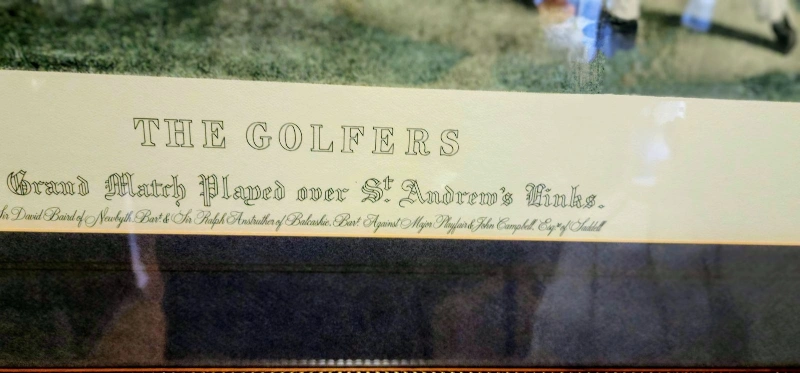 THE GOLFERS
Grand Match Played over St Andrew's Links.
Sir David Baird of Newbyth, Bart & Sir Ralph Anstruther of Balcaskie, Bart. Against Major Playfair & John Campbell, Esqre of Saddell